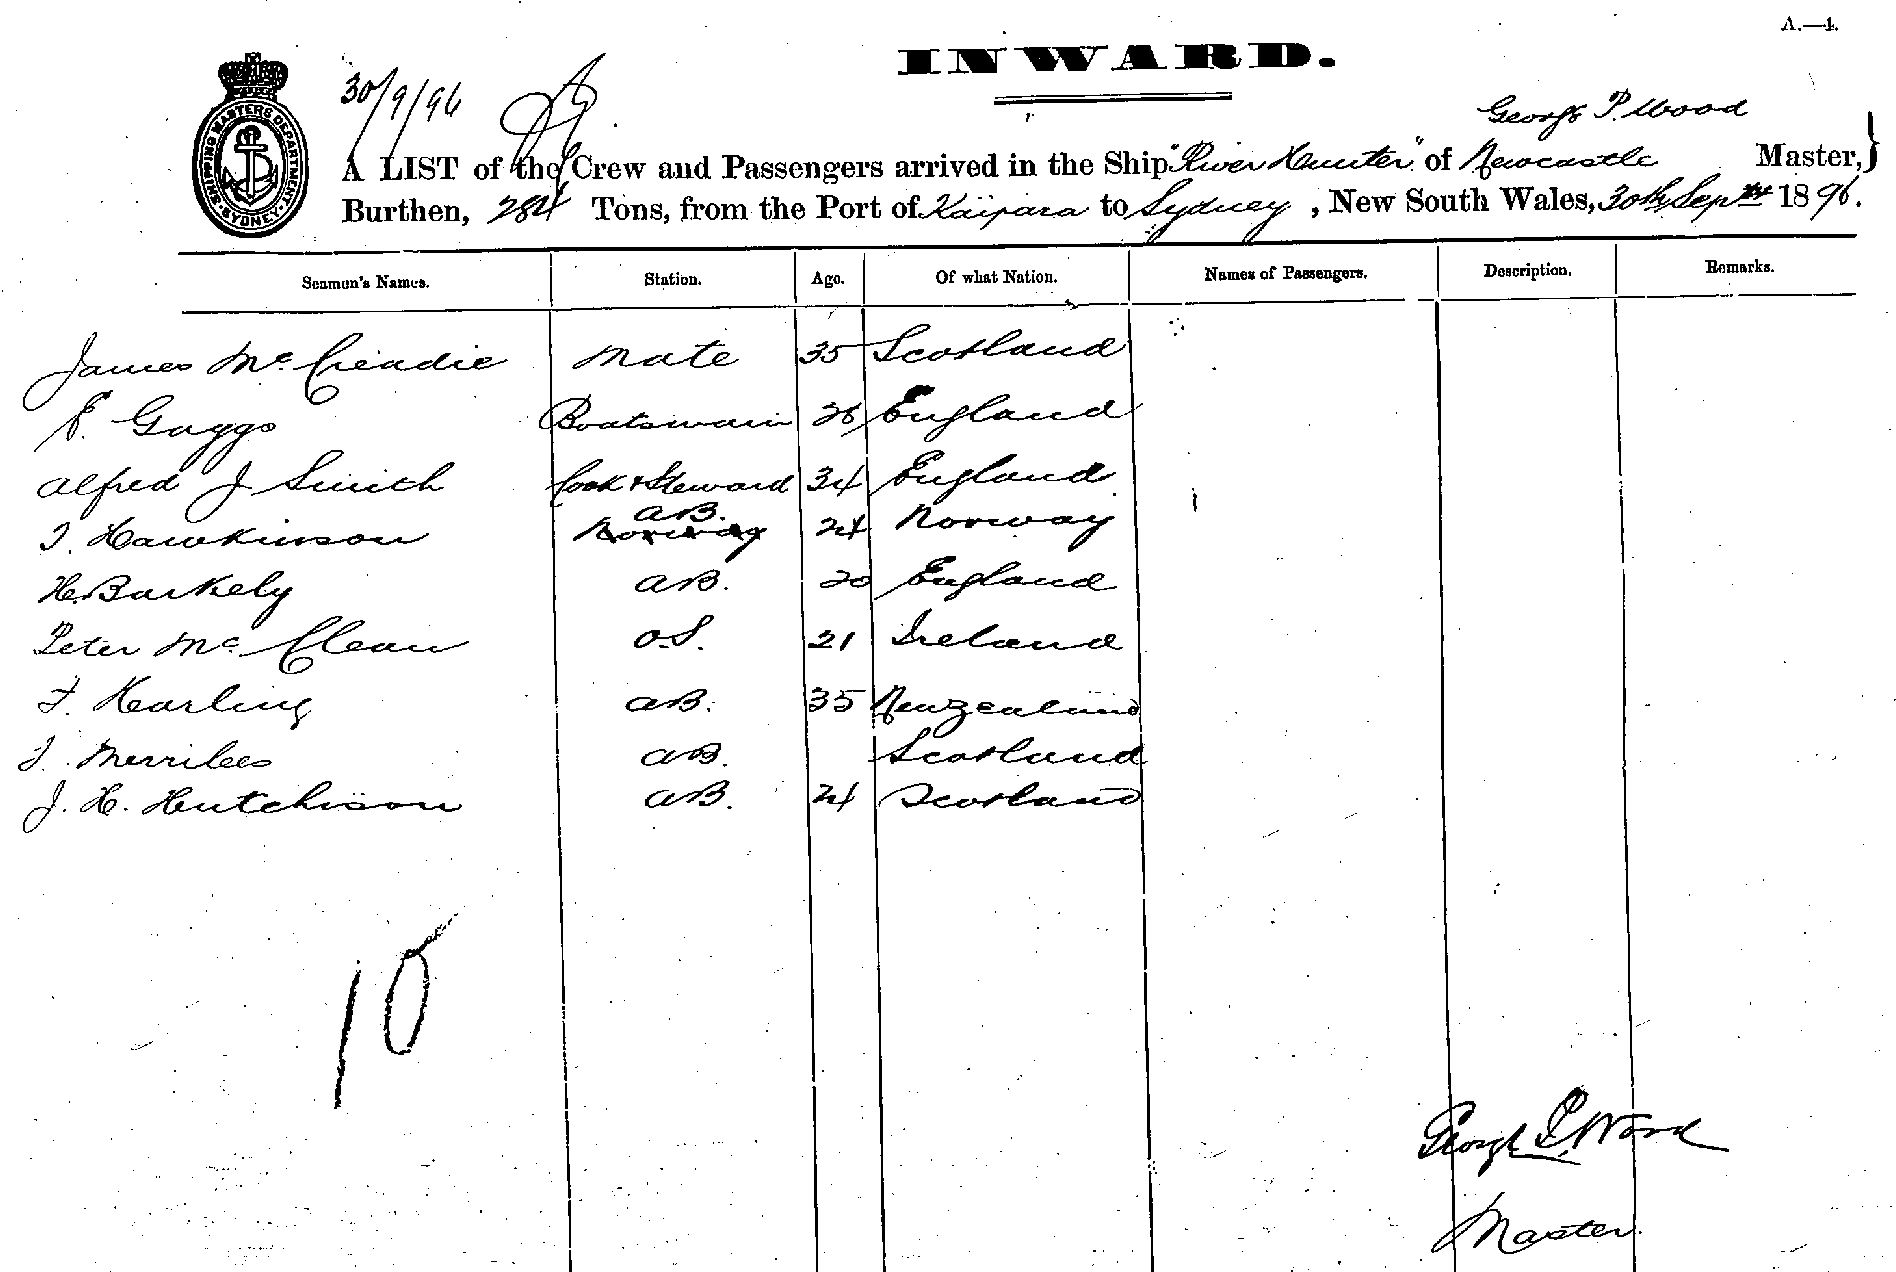 A.—4.
INWARD.
SHIPPING MASTERS DEPARTMENT SYDNEY
30/9/96
George P. Wood
A LIST of the Crew and Passengers arrived in the Ship "River Hunter" of Newcastle Master,}
Burthen, 284 Tons, from the Port of Kaipara to Sydney, New South Wales, 30th Septr 1896.
Seamen's Names. Station. Age. Of what Nation. Names of Passengers. Description. Remarks.
James McCreadie Mate 35 Scotland
E. Gaggs Boatswain 26 England
Alfred J Smith Cook & Steward 34 England
AB.
J. Hawkinson Norway 24 Norway
H. Barkely AB. 20 England
Peter McClean O.S. 21 Ireland
F. Harling AB. 35 New Zealand
J. Merrilees AB. Scotland
J. H. Hutchison AB. 24 Scotland
10
George P. Wood
Master.